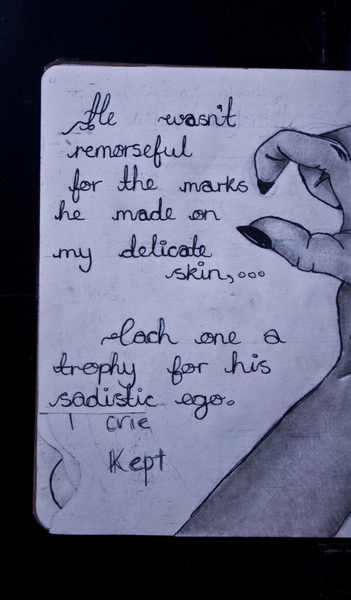 He wasn't
remorseful
for the marks
he made on
my delicate
skin,...
Each one a
trophy for his
sadistic ego.
I crie
Kept